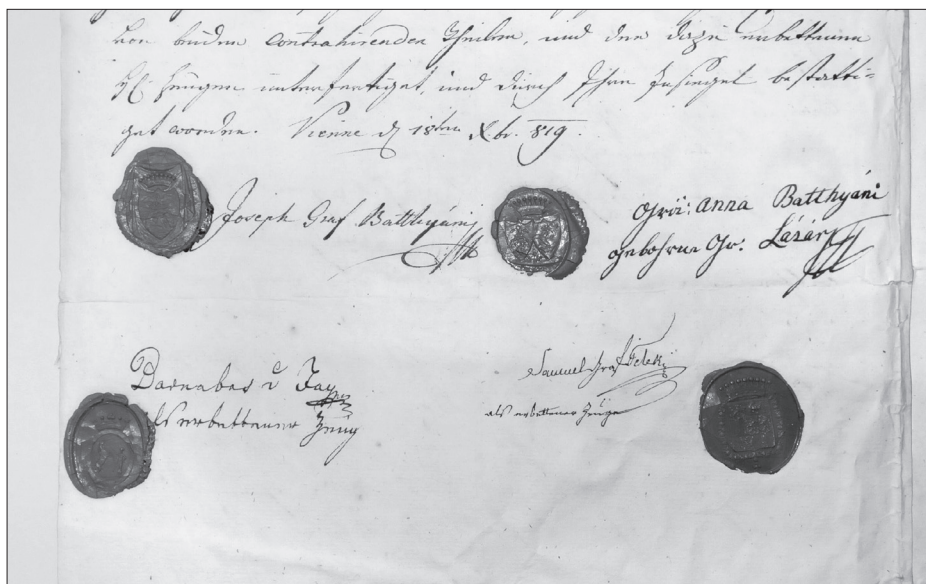 von beiden contrahirenden Theilen, und den dazu erbettenen
H. Zeugen unterfertiget, und durch Ihre Insiegel bestätti-
get worden. Vienne d 18ten Xbr. 819.
Joseph Graf Batthyány
Gräi: Anna Batthyáni
gebohrne Gr: Lázár
Barnabas v Fay
als erbettener Zeug
Samuel Graf Teleki
als erbettener Zeuge